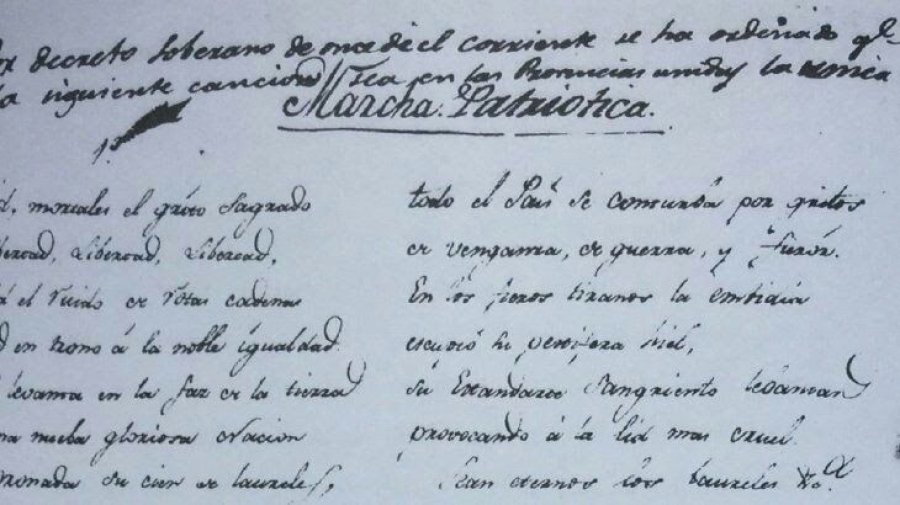 decreto soberano de once de el corriente se ha ordenado qe
la siguiente cancion sea en las Provincias unidas la unica
Marcha Patriotica.
1.ª
mortales el grito Sagrado
Libertad, Libertad,
el ruido de rotas cadenas
en trono á la noble igualdad.
levanta en la faz de la tierra
nueba gloriosa Nacion
coronada su cien de laureles,
todo el País se conturba por gritos
de venganza, de guerra, y furór.
En los fieros tiranos la embidia
escupió su pestifera hiel,
su Estandarte sangriento levantan
provocando á la lid mas cruel.
Sean eternos los laureles &.ª